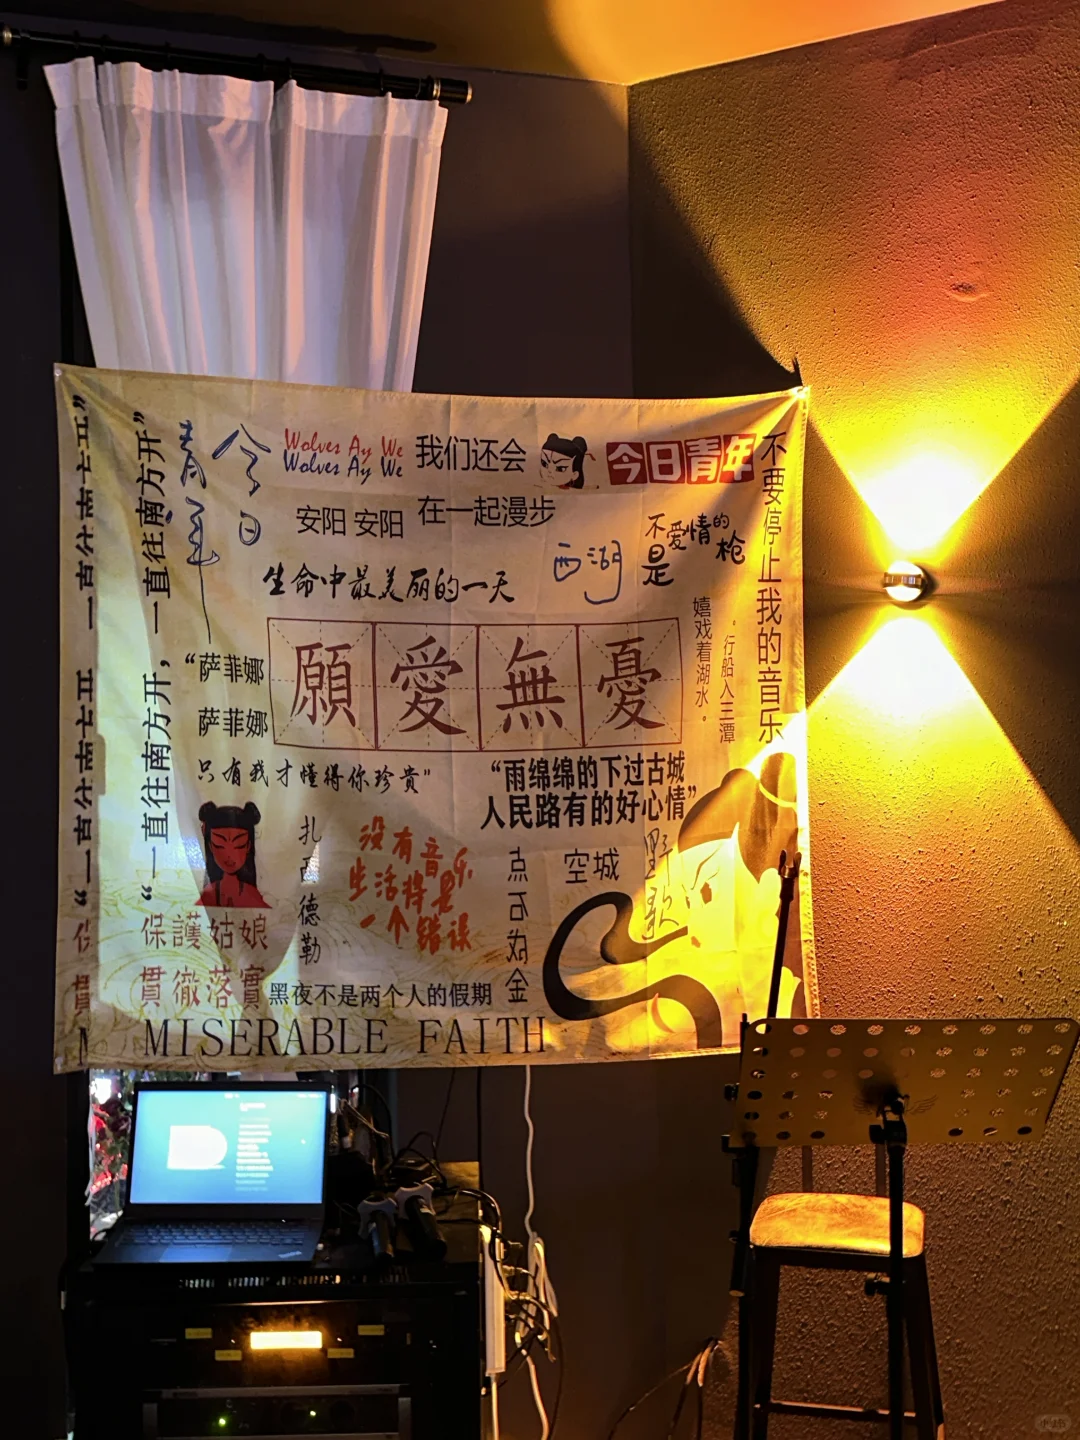 今日
青年
Wolves Ay We
Wolves Ay We
我们还会
在一起漫步
今日青年
安阳 安阳
西湖
不爱情的
是枪
不要停止我的音乐
生命中最美丽的一天
嬉戏着湖水。
。行船入三潭
願愛無憂
“萨菲娜
萨菲娜
只有我才懂得你珍贵”
“一直往南方开，一直往南方开”
“雨绵绵的下过古城
人民路有的好心情”
扎西德勒
没有音乐
生活将是
一个错误
点石成金
空城
野歌
保護姑娘
貫徹落實
黑夜不是两个人的假期
MISERABLE FAITH